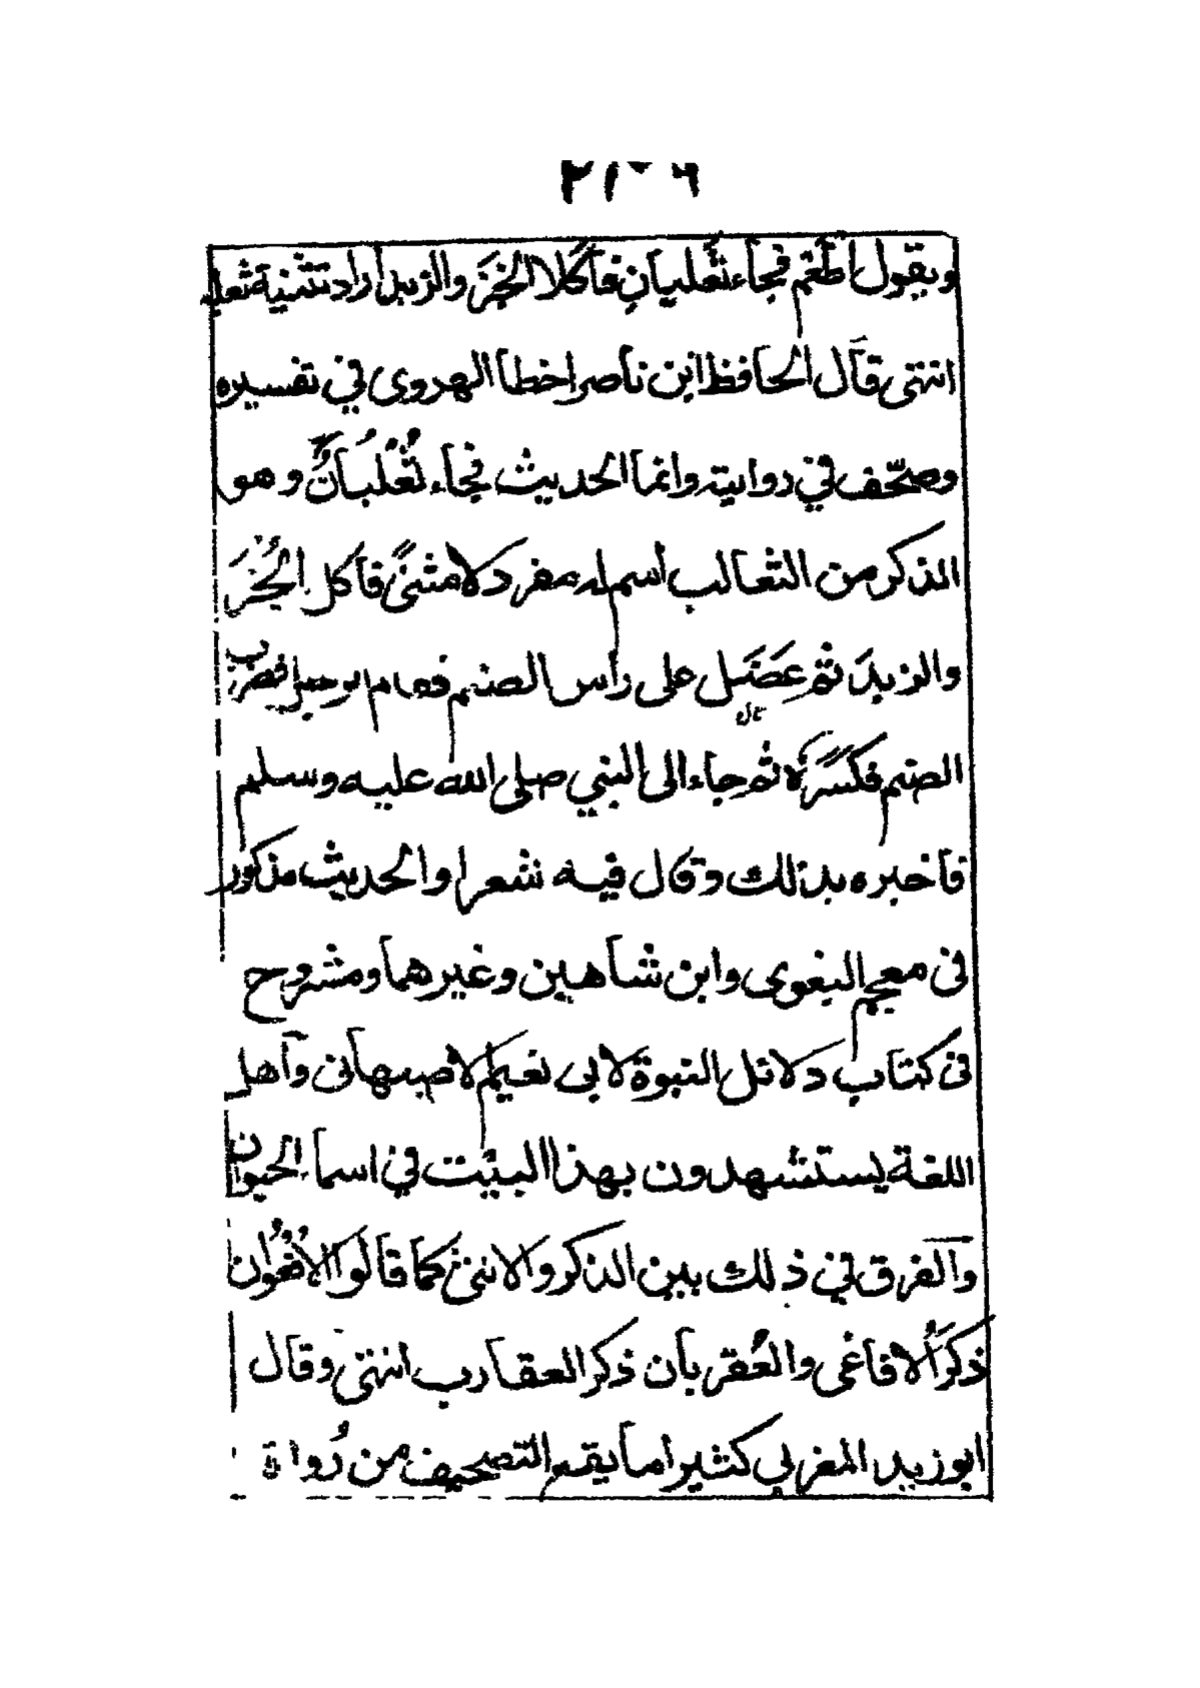 ويقول اطعم فجاء ثعلبان فأكلا الخبزَ والزبد اراد تثنية ثعلب
انتهى قال الحافظ ابن ناصر اخطا الهروى في تفسيره
وصحّف في روايته وانما الحديث فجاء ثُعْلُبَانٌ وهو
الذكر من الثعالب اسم له مفرد لا مثنًى فاكل الخُبْزَ
والزبدَ ثم عَصَل على رأس الصنم فقام الرجل فضرب
الصنم فكسَّرَه ثم جاء الى النبي صلى الله عليه وسلم
فاخبره بذلك وقال فيه شعرا والحديث مذكور
فى معجم البغوى وابن شاهين وغيرهما ومشروح
فى كتاب دلائل النبوة لابى نعيم الاصبهانى وآهل
اللغة يستشهدون بهذا البيت في اسماء الحيوان
والفرق في ذلك بين الذكر والانثى كما قالوا الافْعُوان
ذكَرُ الافاعى والعُقْرُبان ذكر العقارب انتهى وقال
ابو زيد المغربي كثير اما يقع التصحيف من رُواة